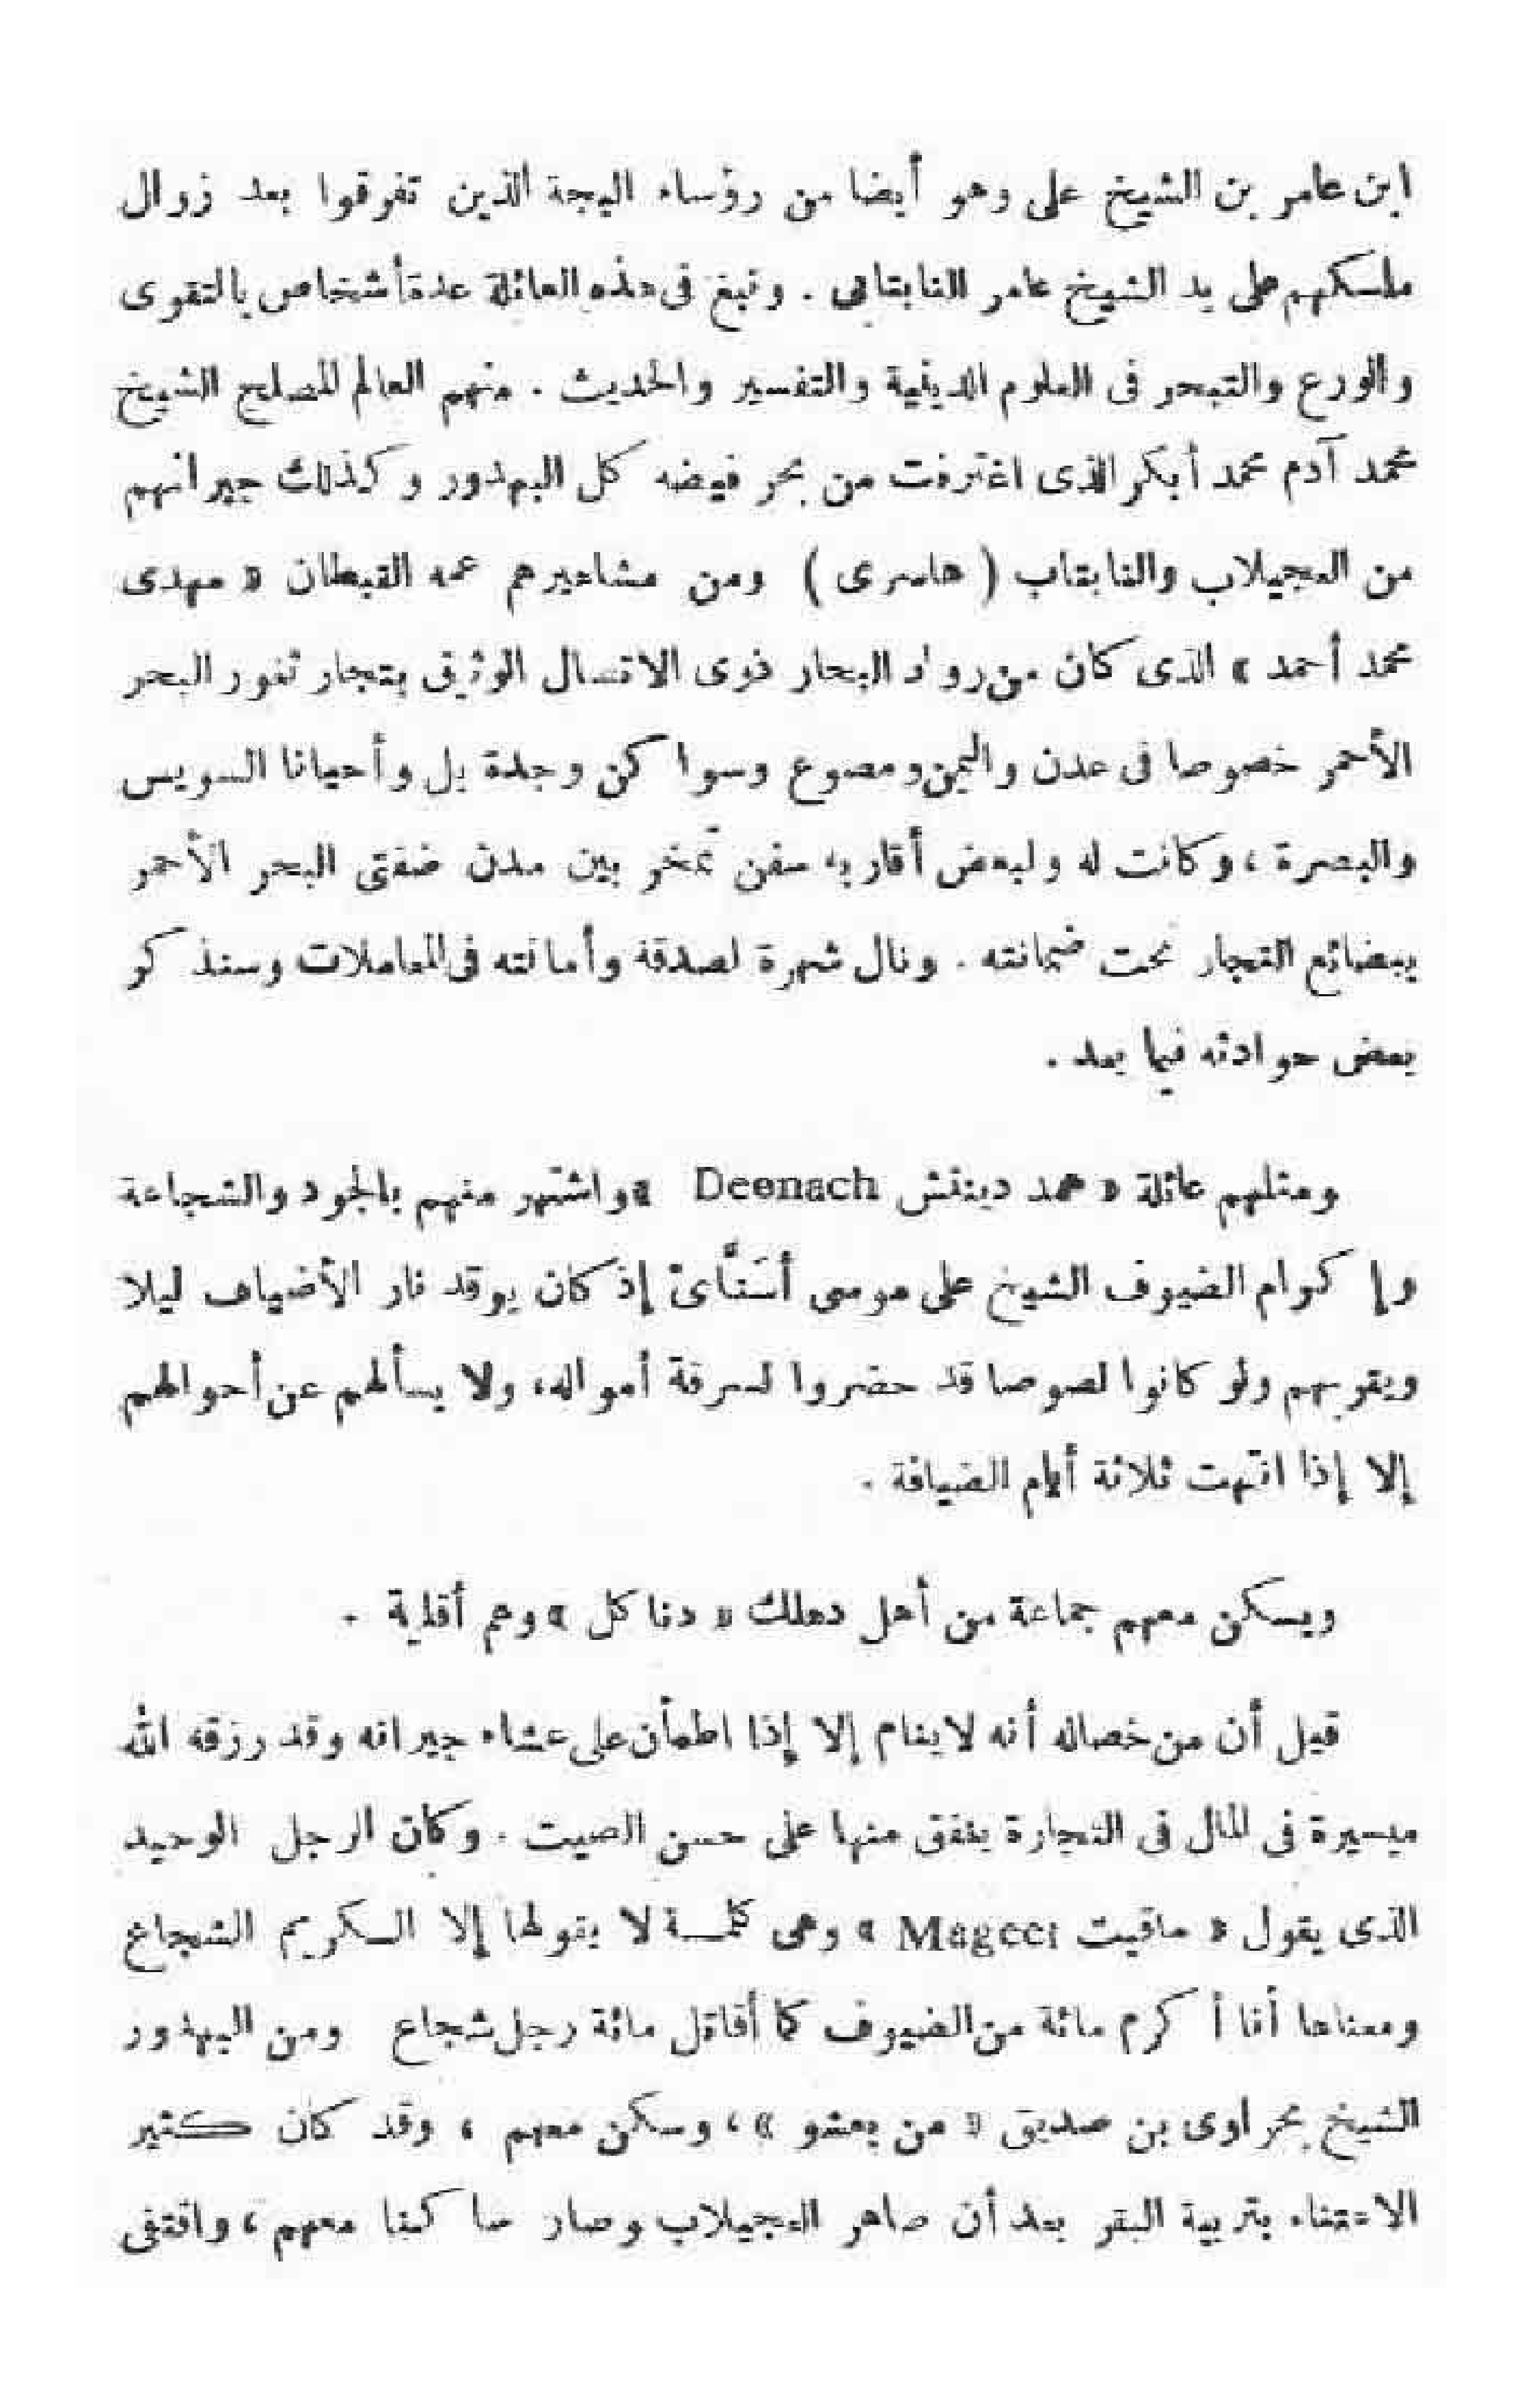 ابن عامر بن الشيخ على وهو أيضا من رؤساء البجة الذين تفوقوا بعد زوال
ملكهم على يد الشيخ عامر النابتابى . ونبغ فى هذه العائلة عدة أشخاص بالتقوى
والورع والتبحر فى العلوم الدينية والتفسير والحديث . منهم العالم المصلح الشيخ
محمد آدم محمد أبكر الذى اغترفت من بحر فيضه كل البهدور وكذلك جيرانهم
من العجيلاب والنابتاب ( هاسرى ) ومن مشاهيرهم عمه القبطان « مهدى
محمد أحمد » الذى كان من رواد البحار ذوى الاتصال الوثيق بتجار ثغور البحر
الأحمر خصوصا فى عدن واليمن ومصوع وسواكن وجدة بل وأحيانا السويس
والبصرة ، وكانت له ولبعض أقاربه سفن تمخر بين مدن ضفتى البحر الأحمر
ببضائع التجار تحت ضمانته . ونال شهرة لصدقة وأمانته فى المعاملات وسنذكر
بعض حوادثه فيما بعد .
ومثلهم عائلة « همد ديننش Deenach » واشتهر منهم بالجود والشجاعة
وإكرام الضيوف الشيخ على موسى أسَنَّاىْ إذ كان يوقد نار الأضياف ليلا
ويقربهم ولو كانوا لصوصا قد حضروا لسرقة أمواله، ولا يسألهم عن أحوالهم
إلا إذا انتهت ثلاثة أيام الضيافة .
ويسكن معهم جماعة من أهل دهلك « دناكل » وهم أقلية .
قيل أن من خصاله أنه لا ينام إلا إذا اطمأن على عشاء جيرانه وقد رزقه الله
ميسيرة فى المال فى التجارة ينفق منها على حسن الصيت . وكان الرجل الوحيد
الذى يقول « ماقيت Mageet » وهى كلمة لا يقولها إلا الكريم الشجاع
ومعناها أنا أكرم مائة من الضيوف كما أقاتل مائة رجل شجاع ومن البهدور
الشيخ بحراوى بن صديق « من بعشو » ، وسكن معهم ، وقد كان كثير
الاعتناء بتربية البقر بعد أن صاهر العجيلاب وصار ساكنا معهم ، واقتفى